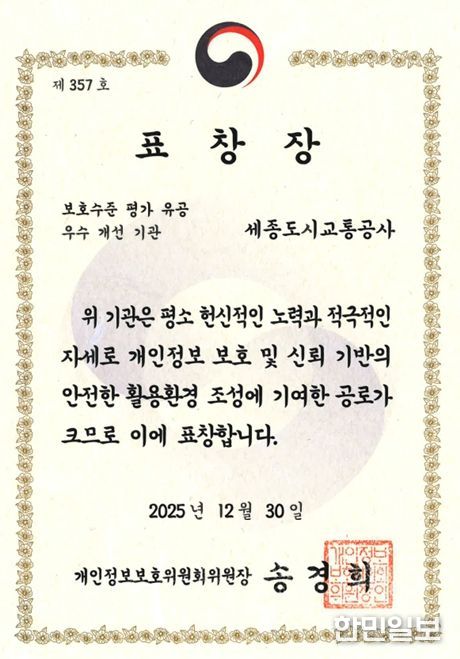 제 357 호
표 창 장
보호수준 평가 유공
우수 개선 기관
세종도시교통공사
위 기관은 평소 헌신적인 노력과 적극적인
자세로 개인정보 보호 및 신뢰 기반의
안전한 활용환경 조성에 기여한 공로가
크므로 이에 표창합니다.
2025년 12월 30일
개인정보보호위원회위원장 송경희
개인정보
보호위원회
위원장인
한민일보